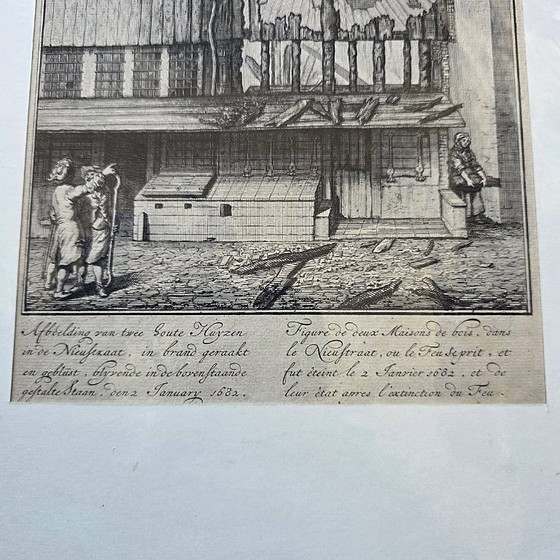 Afbbelding van twee houte Huyzen
in de Nieustraat, in brand geraakt
en geblust, blyvende in de bovenstaande
gestalte Staan, den 2 January 1682.
Figure de deux Maisons de bois, dans
le Nieustraat, ou le Feu se prit, et
fut éteint le 2 Janvier 1682, et de
leur état apres l'extinction du Feu.